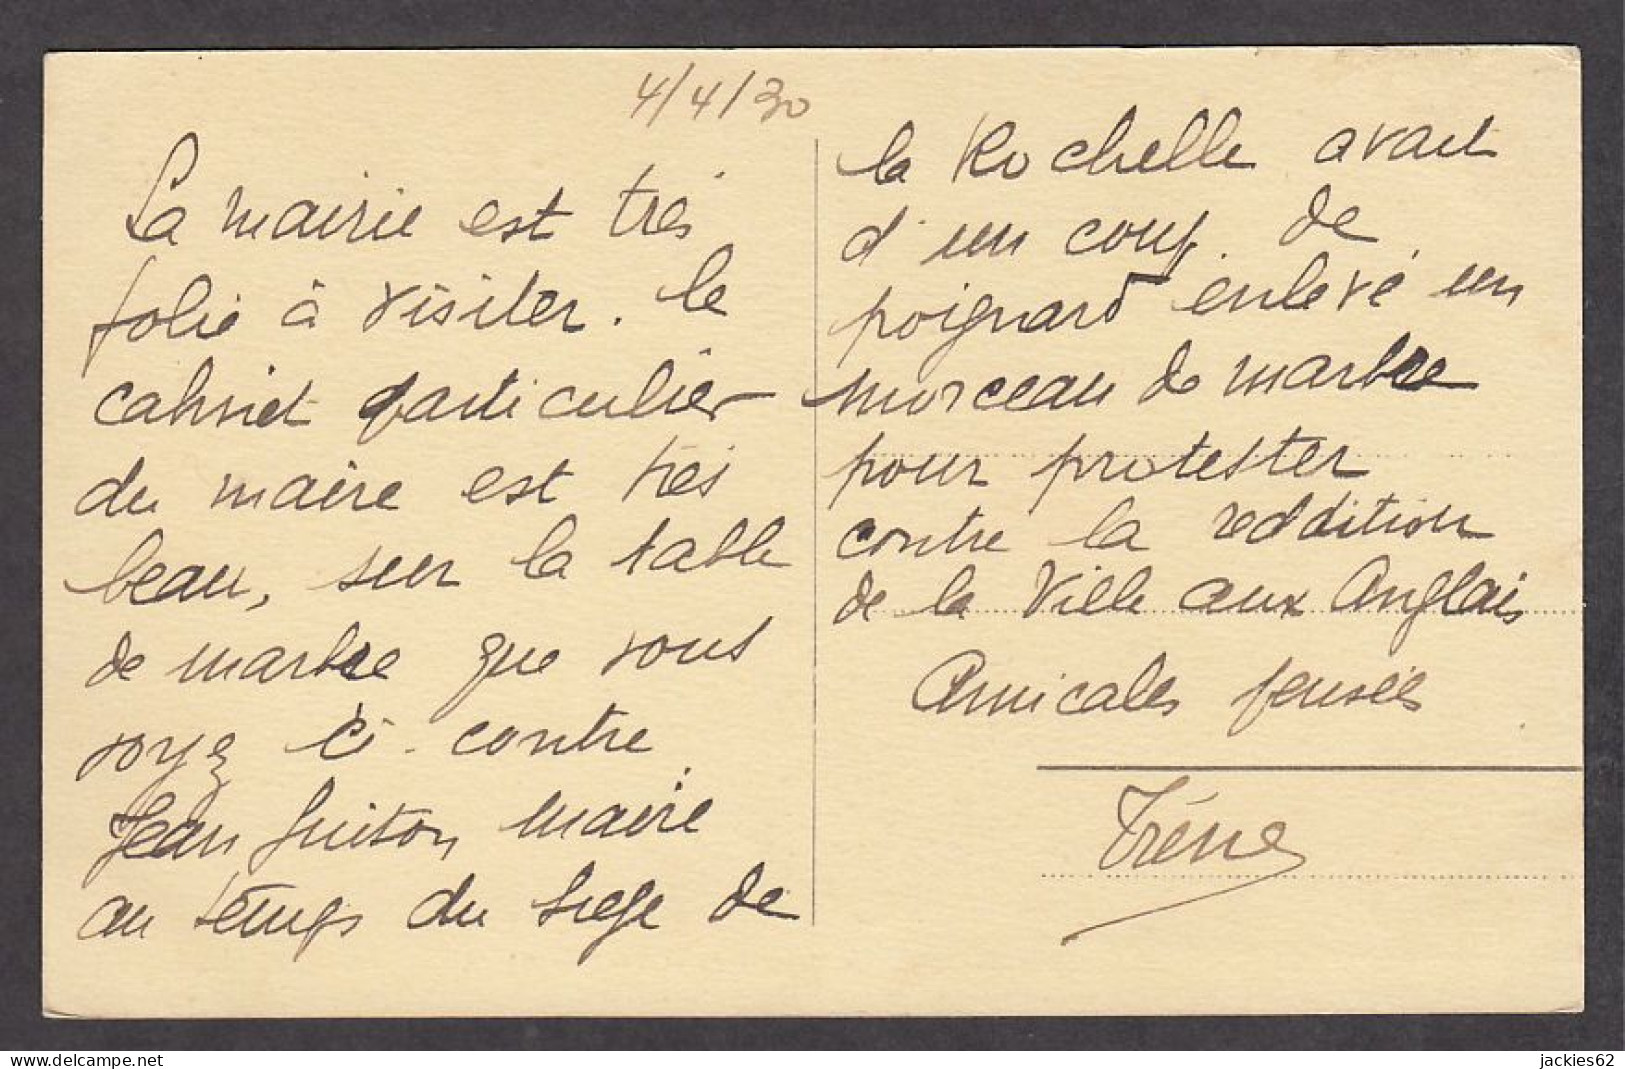 4/4/30
La mairie est très
jolie à visiter. le
cabinet particulier
du maire est très
beau, sur la table
de marbre que vous
voyez ci-contre
Jean Guiton maire
au temps du siège de
la Rochelle avait
d'un coup de
poignard enlevé un
morceau de marbre
pour protester
contre la reddition
de la Ville aux Anglais
Amicales pensées
Irène
jackies62